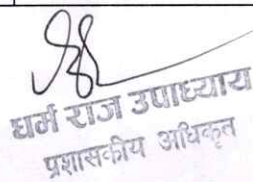 धर्म राज उपाध्याय
प्रशासकीय अधिकृत